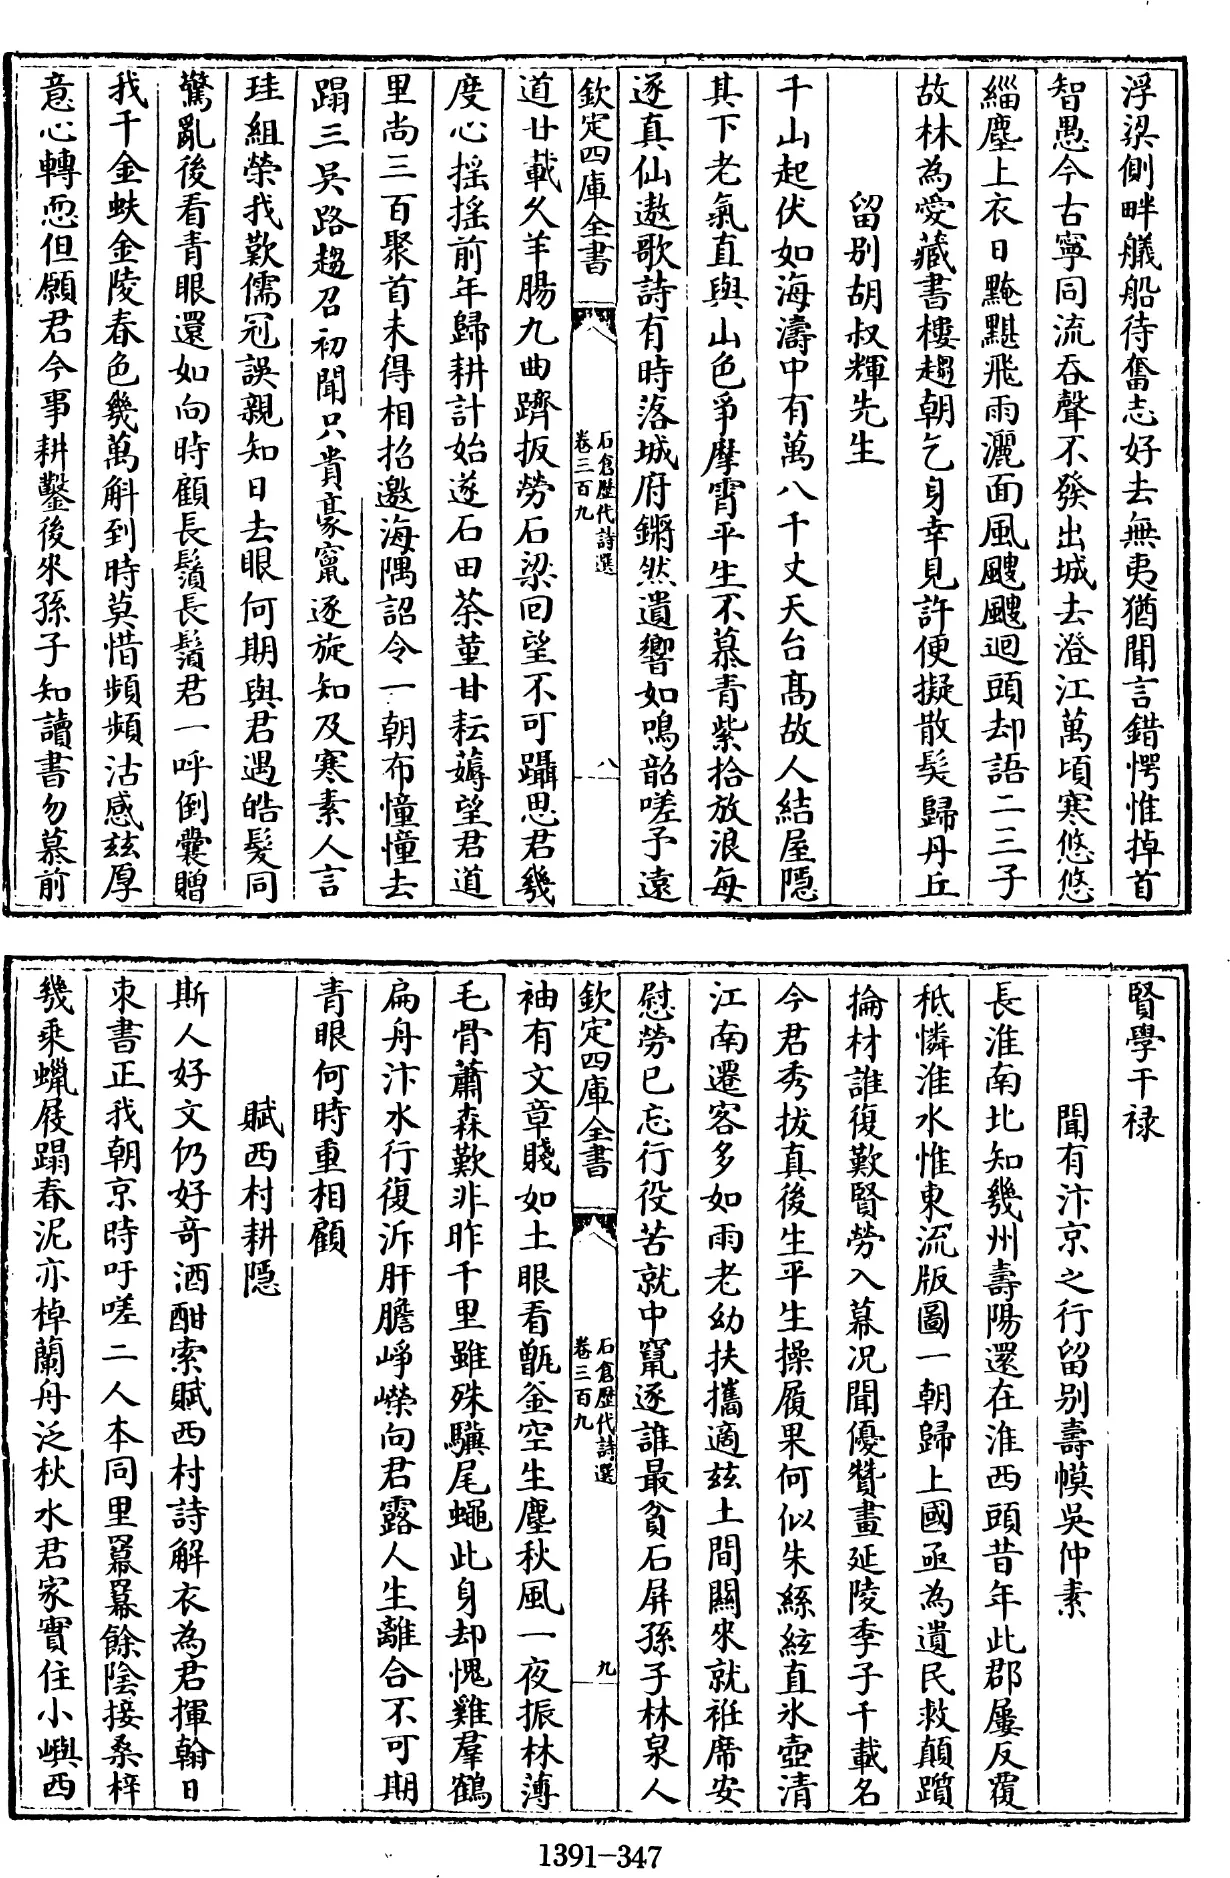 浮梁側畔艤船待奮志好去無夷猶聞言錯愕惟掉首
智愚今古寧同流吞聲不發出城去澄江萬頃寒悠悠
緇塵上衣日黤黮飛雨灑面風颼颼迴頭却語二三子
故林為愛藏書樓趨朝乞身幸見許便擬散髮歸丹丘
留別胡叔輝先生
千山起伏如海濤中有萬八千丈天台髙故人結屋隱
其下老氣直與山色爭摩霄平生不慕青紫拾放浪每
逐真仙遨歌詩有時落城府鏘然遺響如鳴韶嗟予遠
欽定四庫全書
石倉歴代詩選
卷三百九
八
道廿載久羊腸九曲躋扳勞石梁回望不可躡思君幾
度心摇摇前年歸耕計始遂石田荼堇甘耘薅望君道
里尚三百聚首未得相招邀海隅詔令一朝布憧憧去
蹋三吳路趨召初聞只貴豪竄逐旋知及寒素人言
珪組榮我歎儒冠誤親知日去眼何期與君遇皓髮同
驚亂後看青眼還如向時顧長鬚長鬚君一呼倒囊贈
我千金蚨金陵春色幾萬斛到時莫惜頻頻沽感兹厚
意心轉恧但願君今事耕鑿後來孫子知讀書勿慕前
賢學干禄
聞有汴京之行留別壽幙吳仲素
長淮南北知幾州壽陽還在淮西頭昔年此郡屢反覆
秪憐淮水惟東流版圖一朝歸上國亟為遺民救顛躓
掄材誰復歎賢勞入幕况聞優贊畫延陵季子千載名
今君秀拔真後生平生操履果何似朱絲絃直氷壺清
江南遷客多如雨老幼扶攜適兹土間關來就衽席安
慰勞已忘行役苦就中竄逐誰最貧石屏孫子林泉人
欽定四庫全書
石倉歴代詩選
卷三百九
九
袖有文章賤如土眼看甑釜空生塵秋風一夜振林薄
毛骨蕭森歎非昨千里雖殊驥尾蠅此身却愧雞羣鶴
扁舟汴水行復泝肝膽崢嶸向君露人生離合不可期
青眼何時重相顧
賦西村耕隱
斯人好文仍好竒酒酣索賦西村詩解衣為君揮翰日
束書正我朝京時吁嗟二人本同里冪冪餘陰接桑梓
幾乘蠟屐蹋春泥亦棹蘭舟泛秋水君家實住小嶼西
1391-347